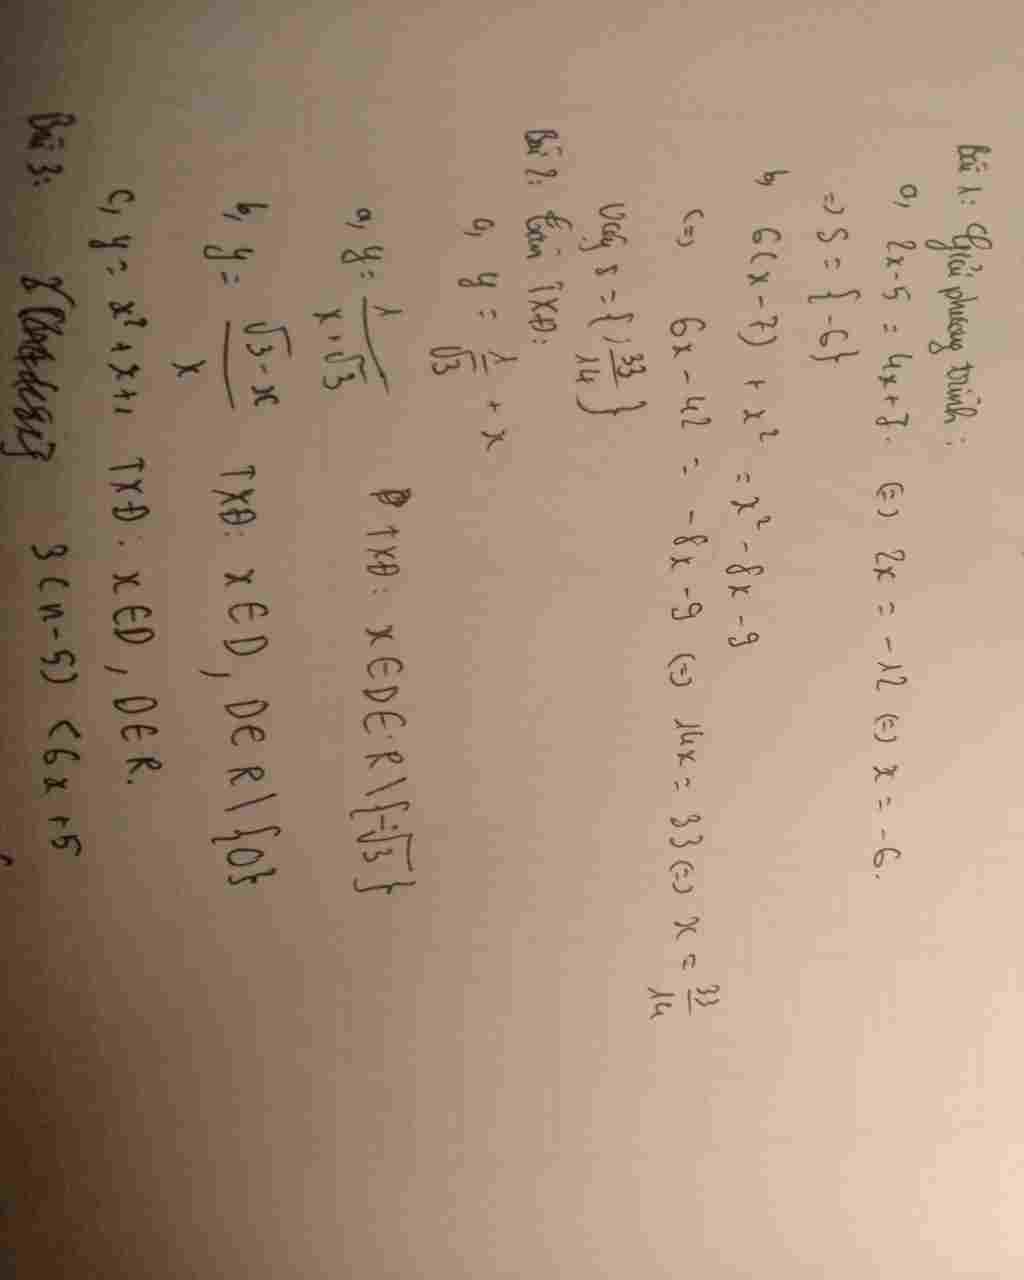 Bài 1: Giải phương trình:
a, 2x-5 = 4x+7. (=) 2x = -12 (=) x = -6.
=> S = { -6 }
b, 6(x-7) + x² = x² - 8x - 9
(=) 6x - 42 = -8x - 9 (=) 14x = 33 (=) x = 33/14
Vậy S = { 33/14 }
Bài 2: tìm TXĐ:
a, y = 1/√3 + x
a, y = 1/x+√3 TXĐ: x ∈ D ∈ R \ { -√3 }
b, y = √3-x/x TXĐ: x ∈ D, D ∈ R \ {0}
c, y = x² + x + 1 TXĐ: x ∈ D, D ∈ R.
Bài 3: 3(n-5) < 6x + 5